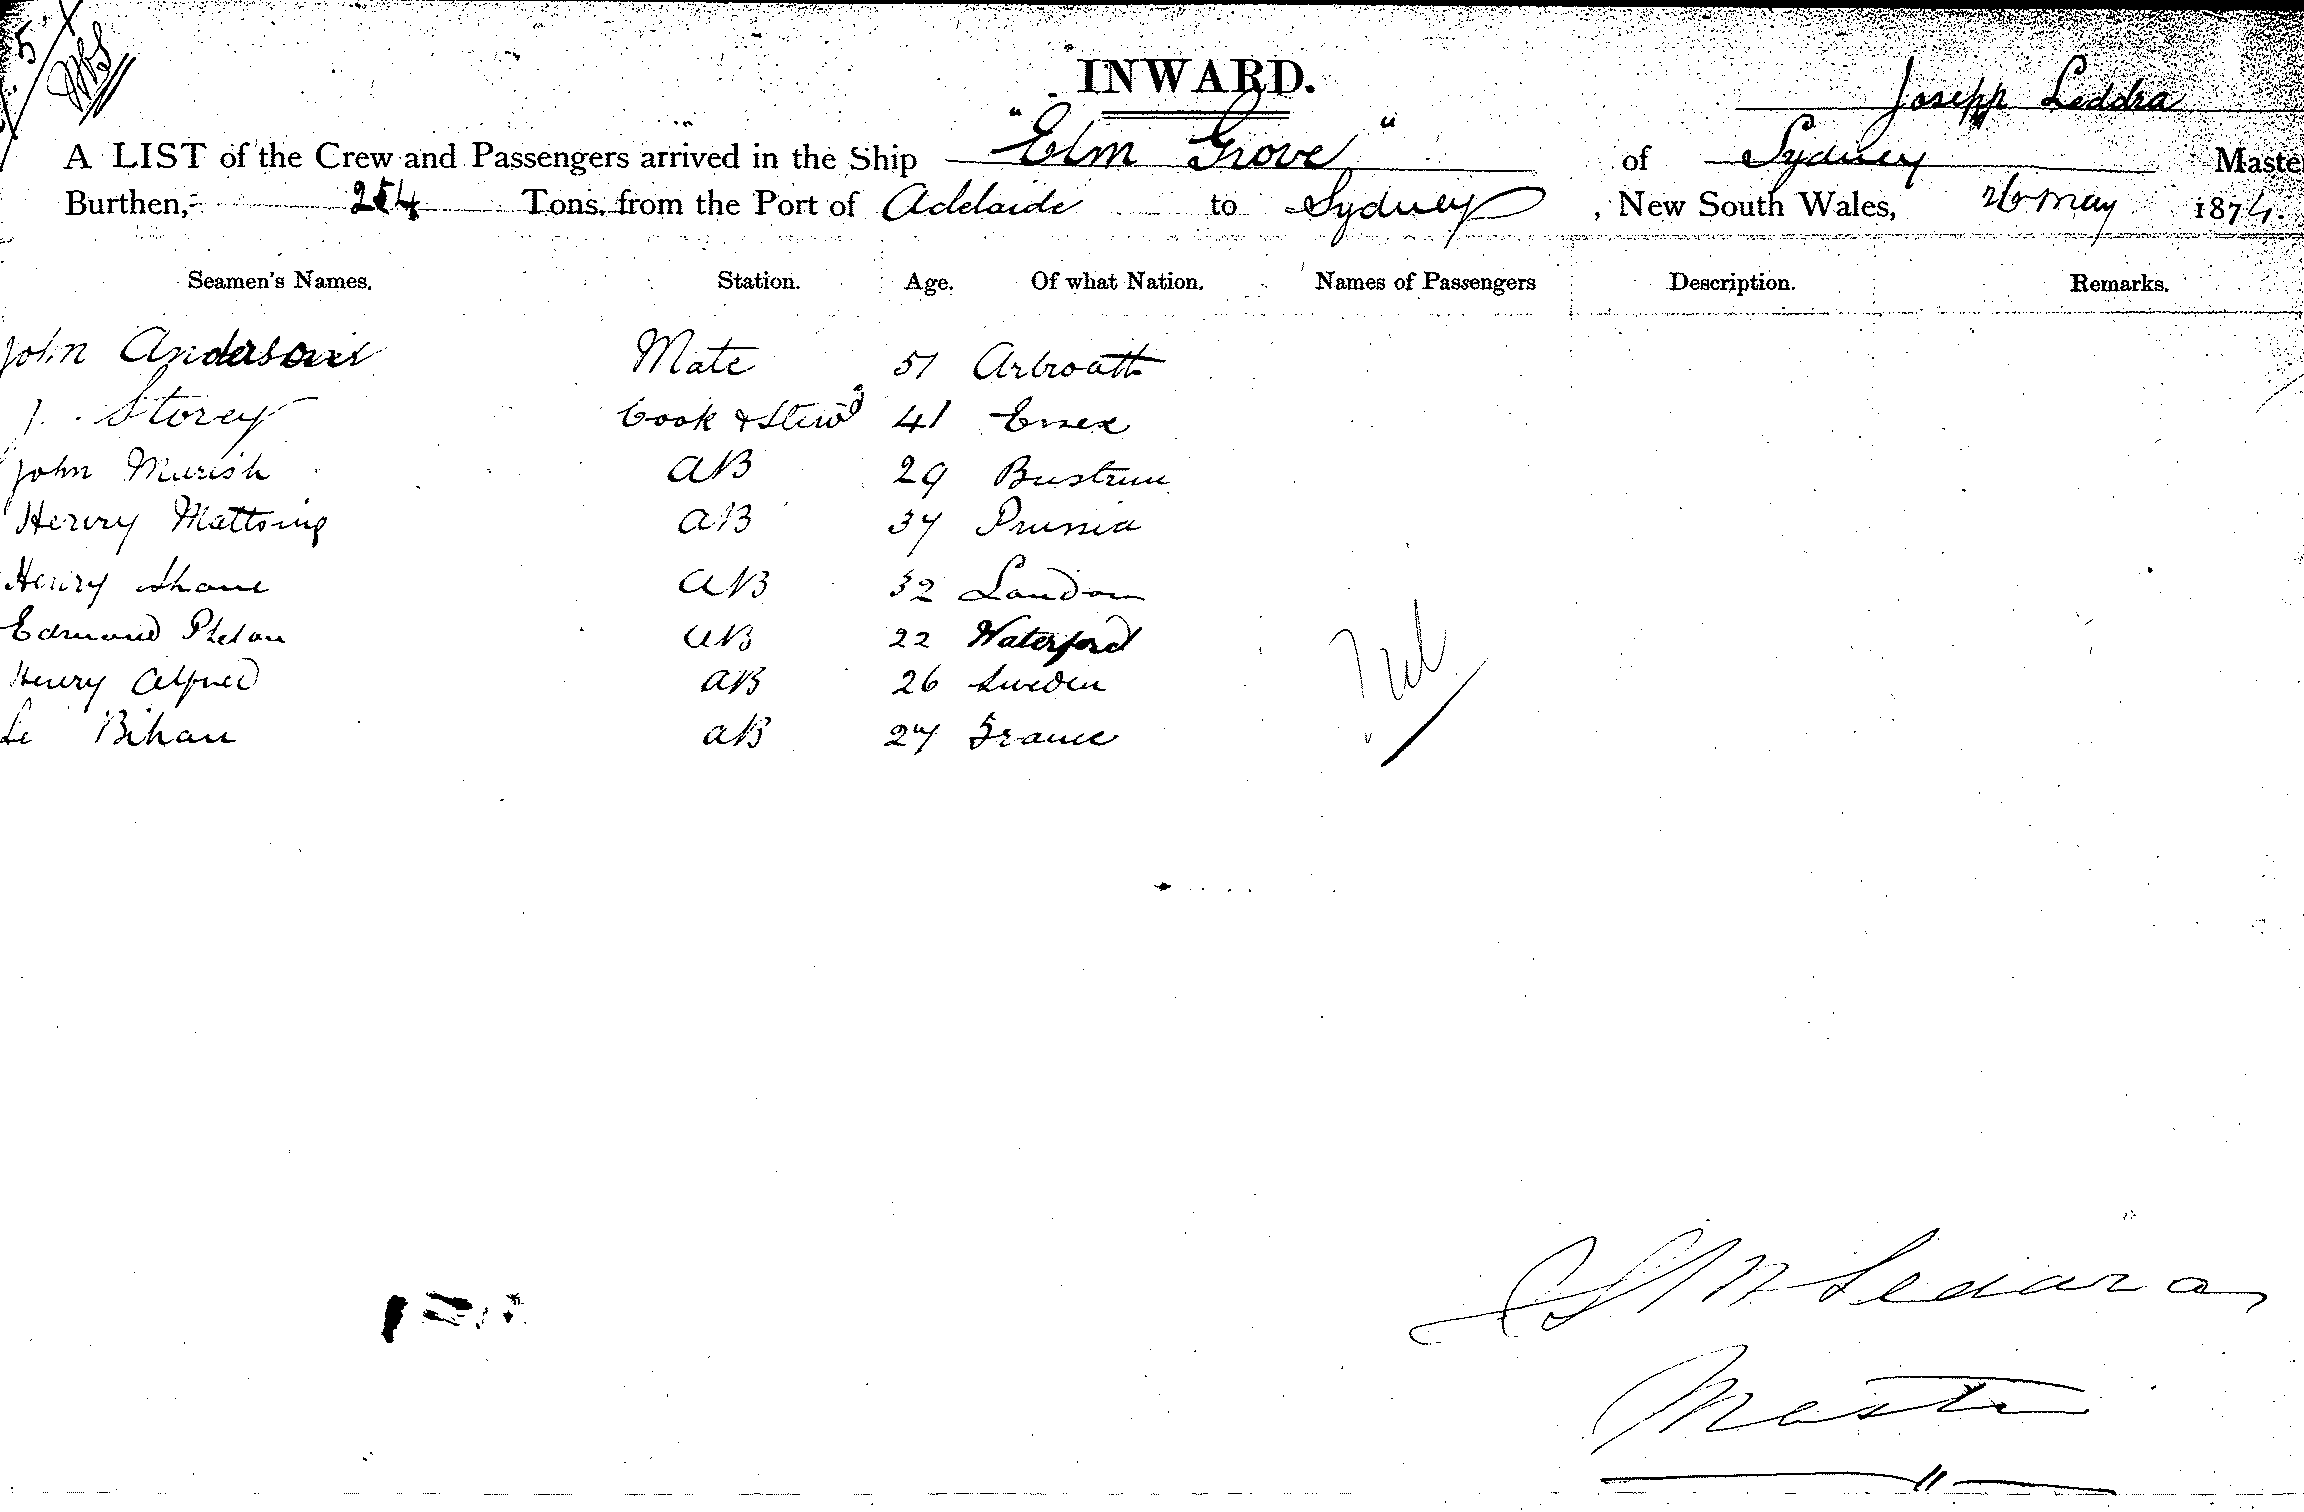 INWARD.
Joseph Leddra
A LIST of the Crew and Passengers arrived in the Ship "Elm Grove" of Sydney Master
Burthen, 254 Tons, from the Port of Adelaide to Sydney, New South Wales, 26 May 1874.
Seamen's Names. Station. Age. Of what Nation. Names of Passengers Description. Remarks.
John Anderson Mate 51 Arbroath
J. Storey Cook & Stewd 41 Essex
John Murish AB 29
Henry Mattsing AB 37 Prussia
Henry Shane AB 32 London
Edmond Phelan AB 22 Waterford
Henry Alfred AB 26 Sweden
Le Bihan AB 27 France
Nil
Leddra
Master